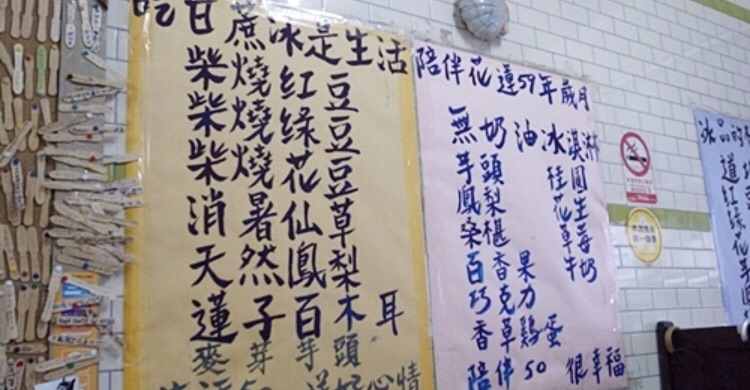 吃甘蔗冰是生活
柴燒紅豆
柴燒綠豆
柴燒花豆
消暑仙草
天然鳳梨
蓮子百木耳
麥芽芋頭
心情
陪伴花蓮59年歲月
無奶油冰淇淋
芋頭 桂圓
鳳梨 花生
桑椹 草莓
百香果 牛奶
巧克力
香草雞蛋
陪伴50 很幸福
冰品的
道
紅
綠
花